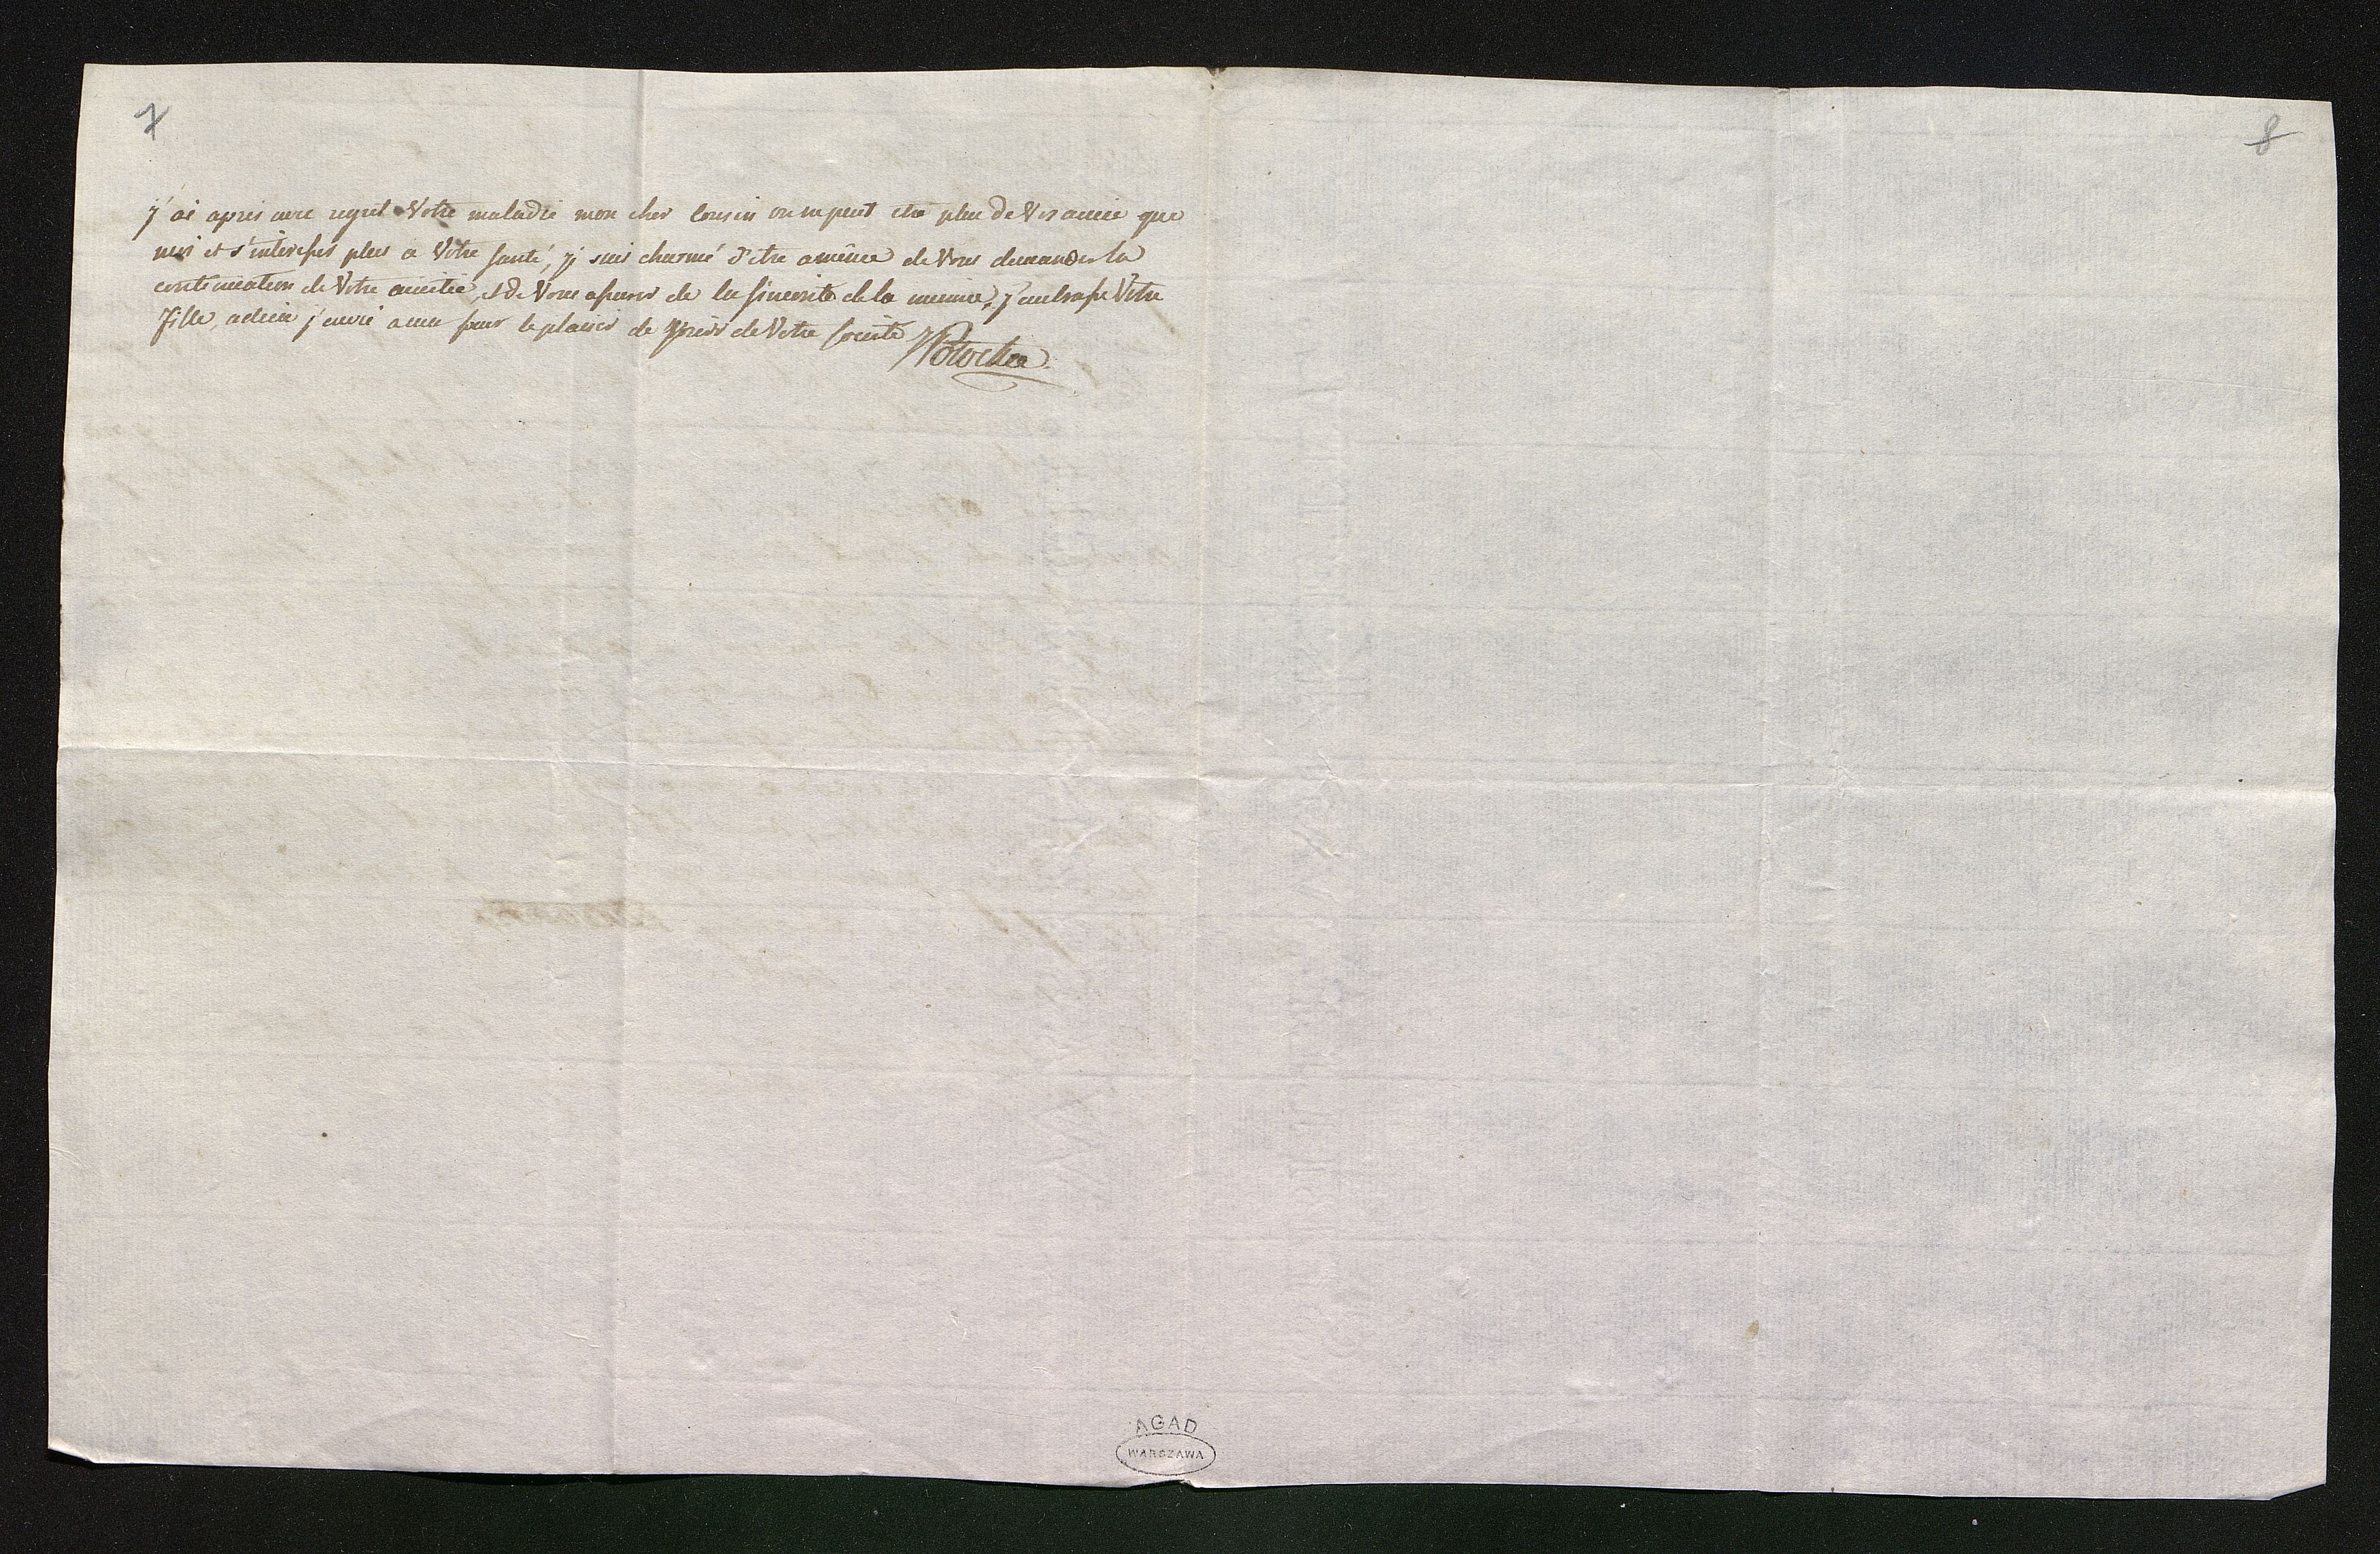 7
8
j'ai apris avec regret Votre maladie mon cher Cousin on ne peut etre plus de Vos amie que
moi et s'interesser plus a Votre santé, je suis charmé d'etre a même de Vous demander la
continuation de Votre amitié, et de Vous assurer de la sincerité de la mienne, j'embrasse Votre
fille, adieu j'envie a ma sœur le plaisir de jouir de Votre societé
Potocka
AGAD
WARSZAWA